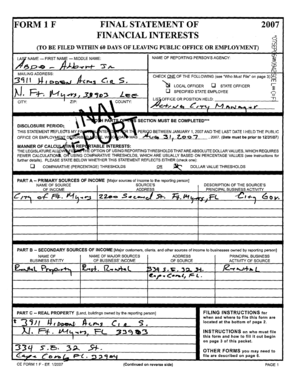 FORM 1 F FINAL STATEMENT OF 2007
FINANCIAL INTERESTS
(TO BE FILED WITHIN 60 DAYS OF LEAVING PUBLIC OFFICE OR EMPLOYMENT)
LAST NAME — FIRST NAME — MIDDLE NAME: NAME OF REPORTING PERSON'S AGENCY:
MAILING ADDRESS:
3911 Hidden Acres Cir S.
CHECK ONE OF THE FOLLOWING (see "Who Must File" on page 3)
LOCAL OFFICER STATE OFFICER
SPECIFIED STATE EMPLOYEE
N. Ft. Myers, Lee
CITY: ZIP: COUNTY: LIST OFFICE OR POSITION HELD
City Manager
FINAL REPORT
DISCLOSURE PERIOD:
THIS STATEMENT REFLECTS BETWEEN JANUARY 1, 2007 AND THE LAST DATE I HELD THE PUBLIC
OFFICE OR EMPLOYMENT Aug 31, 2007
MANNER OF CALCULATING REPORTABLE INTERESTS:
THE LEGISLATURE THE OPTION OF USING REPORTING THRESHOLDS THAT ARE ABSOLUTE DOLLAR VALUES, WHICH REQUIRES
FEWER CALCULATIONS, OR USING COMPARATIVE THRESHOLDS, WHICH ARE USUALLY BASED ON PERCENTAGE VALUES (see instructions for
further details). PLEASE STATE BELOW WHETHER THIS STATEMENT REFLECTS EITHER (check one):
COMPARATIVE (PERCENTAGE) THRESHOLDS OR DOLLAR VALUE THRESHOLDS
PART A -- PRIMARY SOURCES OF INCOME [Major sources of income to the reporting person]
NAME OF SOURCE OF INCOME SOURCE'S ADDRESS DESCRIPTION OF THE SOURCE'S PRINCIPAL BUSINESS ACTIVITY
City of Ft. Myers 2200 Second St. Ft. Myers, FL City Gov
PART B -- SECONDARY SOURCES OF INCOME [Major customers, clients, and other sources of income to businesses owned by reporting person]
NAME OF BUSINESS ENTITY NAME OF MAJOR SOURCES OF BUSINESS' INCOME ADDRESS OF SOURCE PRINCIPAL BUSINESS ACTIVITY OF SOURCE
Rental Property Rental 334 S.E. 32 St. Rental
Cape Coral, FL.
PART C -- REAL PROPERTY [Land, buildings owned by the reporting person]
3911 Hidden Acres Cir S.
N. Ft. Myers, FL 33903
334 S.E. 32 St.
Cape Coral, FL
FILING INSTRUCTIONS for
when and where to file this form are
located at the bottom of page 2.
INSTRUCTIONS on who must file
this form and how to fill it out begin
on page 3 of this packet.
OTHER FORMS you may need to
file are described on page 6.
CE FORM 1 F - Eff. 1/2007 (Continued on reverse side) PAGE 1